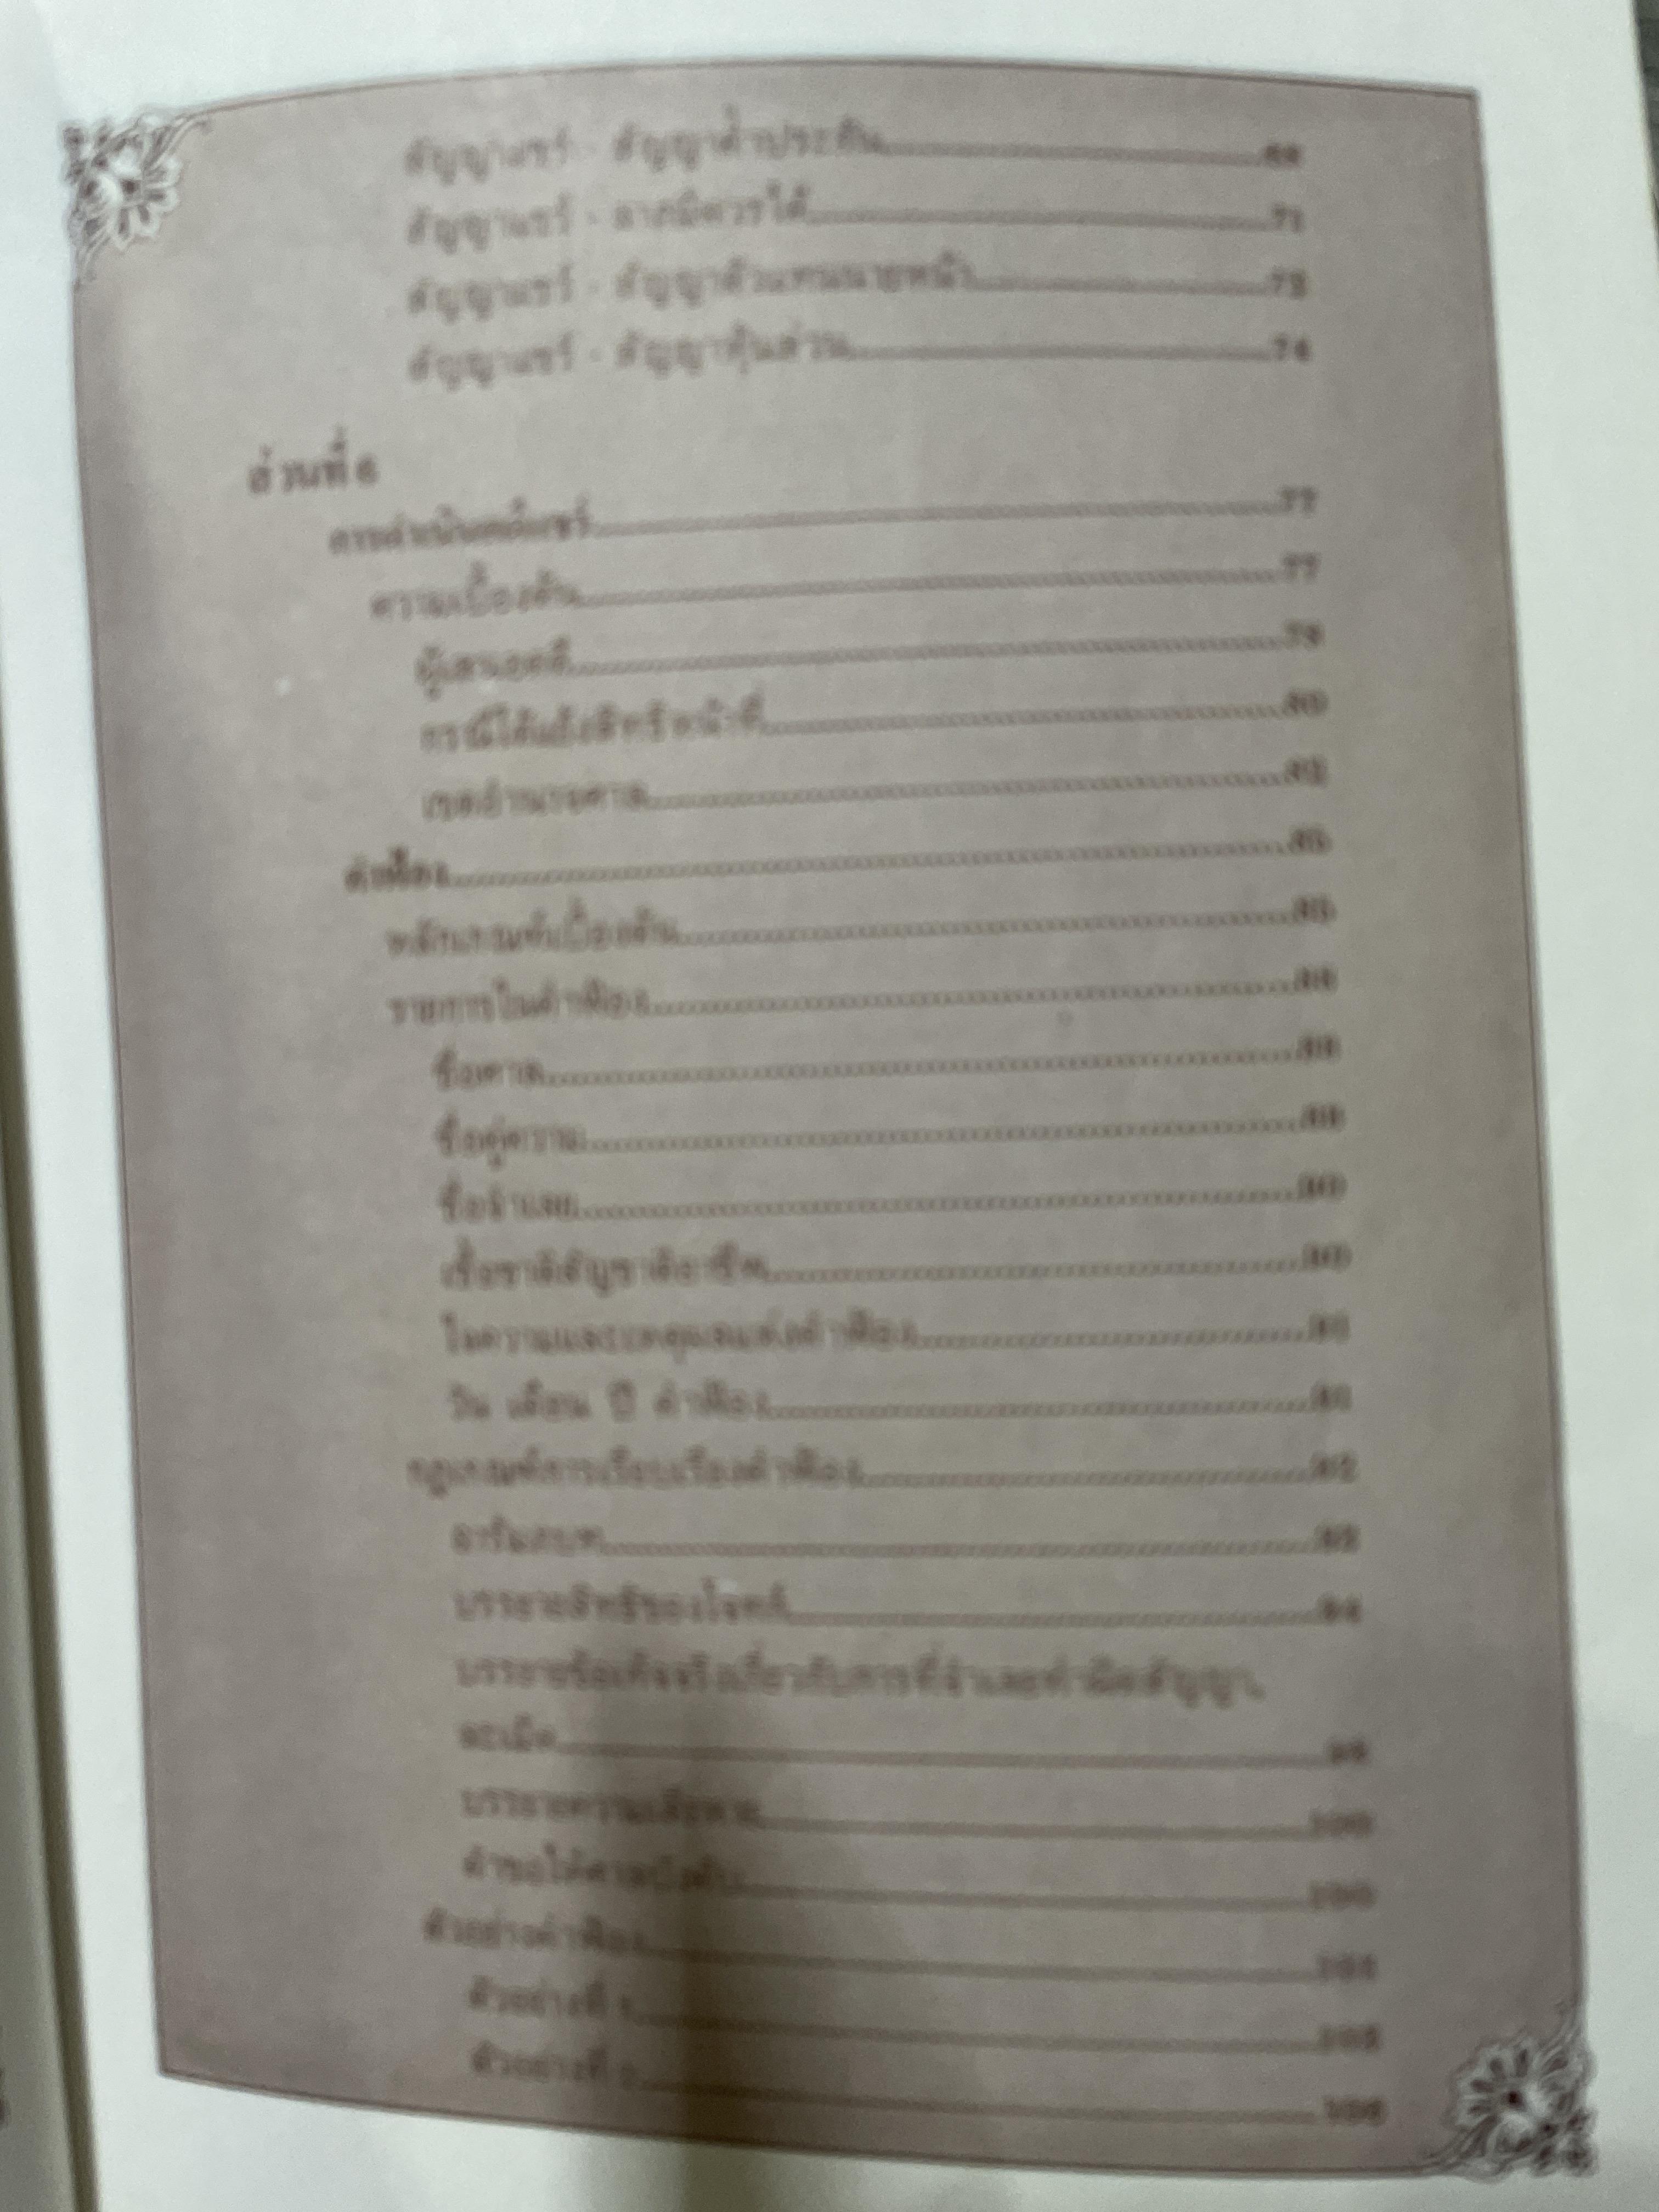 สัญญาแชร์ - สัญญาค้ำประกัน
สัญญาแชร์ - ลาภมิควรได้ 71
สัญญาแชร์ - สัญญาตัวแทนนายหน้า 73
สัญญาแชร์ - สัญญาหุ้นส่วน 74
ส่วนที่ 6
การดำเนินคดีแชร์ 77
ความเบื้องต้น 77
ผู้เสนอคดี 79
กรณีโต้แย้งสิทธิหน้าที่ 80
เขตอำนาจศาล
คำฟ้อง
หลักเกณฑ์เบื้องต้น
รายการในคำฟ้อง
ชื่อศาล
ชื่อคู่ความ
ชื่อจำเลย 90
เชื้อชาติสัญชาติอาชีพ 90
ใจความและเหตุผลแห่งคำฟ้อง 91
วัน เดือน ปี คำฟ้อง 91
กฎเกณฑ์การเรียบเรียงคำฟ้อง 92
อารัมภบท
บรรยายสิทธิของโจทก์ 94
บรรยายข้อเท็จจริงเกี่ยวกับการที่จำเลยทำผิดสัญญา,
ละเมิด
บรรยายความเสียหาย 100
คำขอให้ศาลบังคับ 100
ตัวอย่างคำฟ้อง
ตัวอย่างที่ 1
ตัวอย่างที่ 2